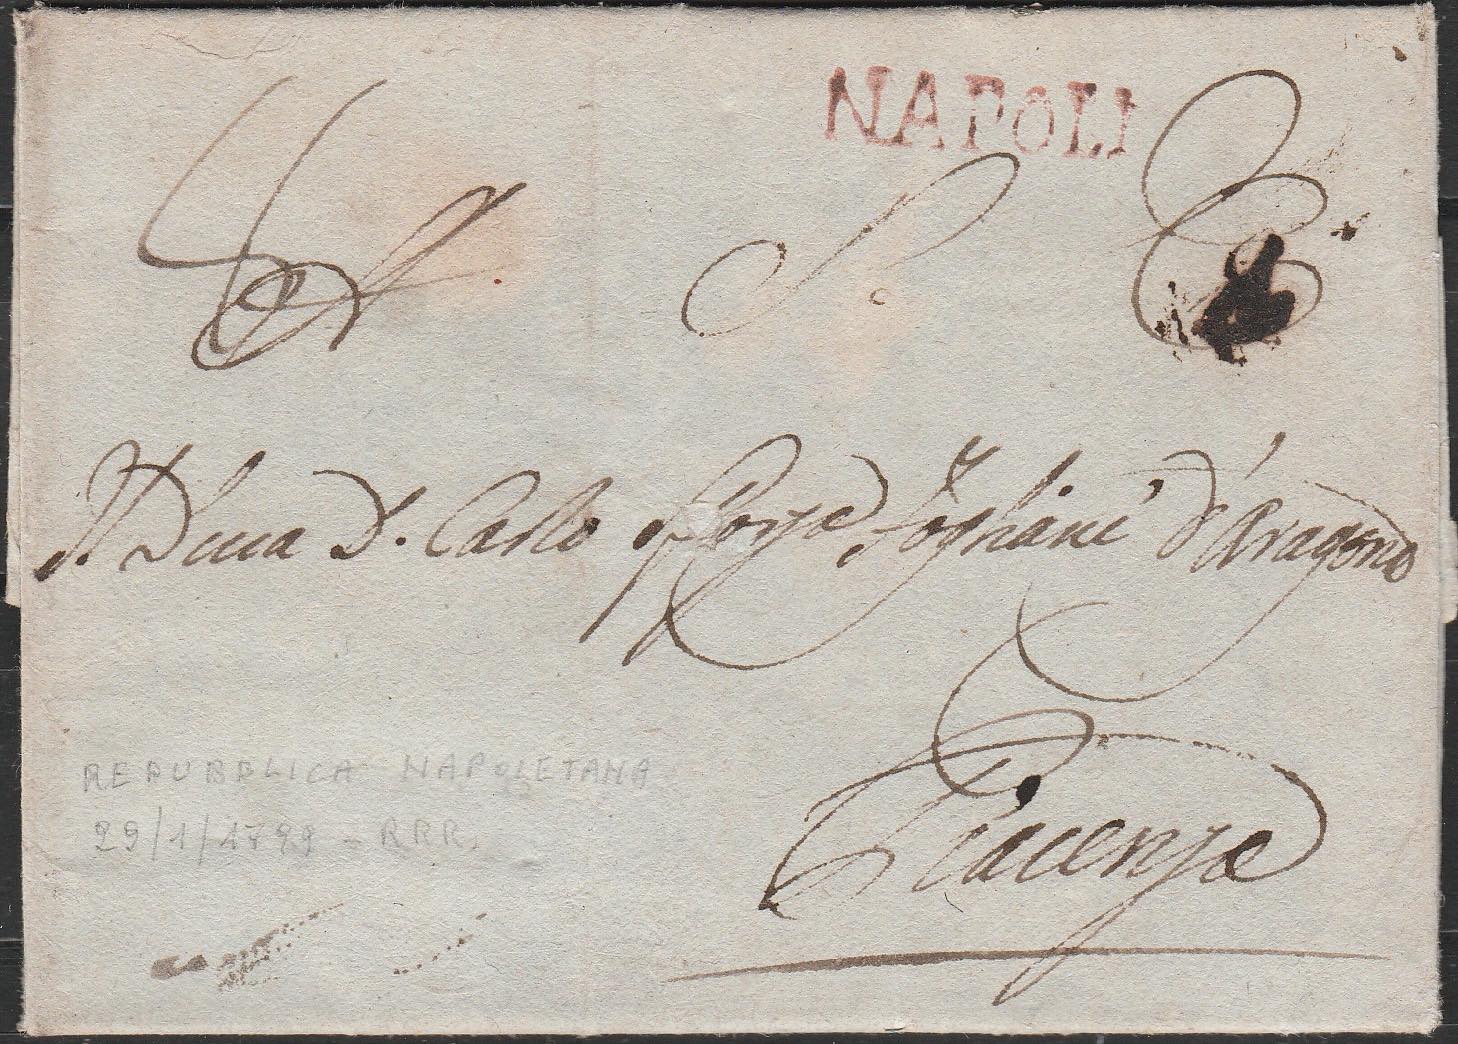 NAPOLI
A S. E.
Il Duca D. Carlo Sforza Fogliani d'Aragona
Piacenza
REPUBBLICA NAPOLETANA
29/1/1799 - RRR